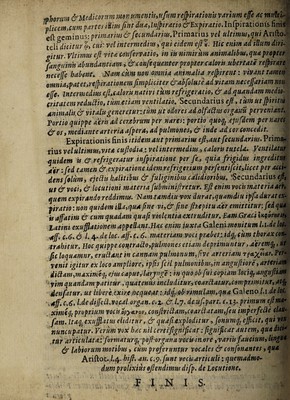 phorum & Medicorum monumentis, usum respirationis varium esse ac multiplicem
cum partes etiam sint duæ, Inspiratio & Expiratio. Inspirationis finis
est geminus: primarius & secundarius, Primarius vel ultimus, qui Aristoteli
dicitur, cui: vel intermedius, qui eidem
gitur. Ultimus est vitæ conservatio, in ijs nimirum animalibus, quæ propter
sanguinis abundantiam, & consequenter propter caloris ubertatē respirare
necesse habent. Nam cum non omnia animalia respirent: vivant tamen
omnia, patet, respirationem simpliciter & absolutè ad vitam necessariam non
esse. Intermedius est, caloris nativi tum refrigeratio, & ad quandam mediocritatem
reductio, tum etiam ventilatio, Secundarius est, tum ut spiritus
animalis & vitalis generetur: tum ut odores ad olfactus organū perveniant.
Portio quippe aëris ad cerebrum per nares: portio quoq; ejusdem per nares
& os, mediante arteria aspera, ad pulmones, & inde ad cor concedit.
Expirationis finis itidem aut primarius est, aut secundarius. Primarius
vel ultimus, vitæ custodia: vel intermedius, caloris tutela. Ventilatur
quidem is & refrigeratur inspiratione per se, quia frigidus ingreditur
aër: sed tamen & expiratione idem refrigerium persentiscit, licet per accidens
solùm, ejectu halituum & fuliginum calidiorum, Secundarius est,
ut & voci, & locutioni materia subministretur. Est enim voci materia aër
quem expirando reddimus.
piratio: non quidem illa, quæ sine vi, & sine spiritu aëris emittitur; sed quæ
affatim & cum quadam quasi violentia extruditur. Eam Græci
Latini exufflationem appellant.
aff. c.6. & l.4. de loc. aff. c.6. materiam voci præbere; idq; cùm thorax
trahitur. Hoc quippe contracto, pulmones etiam deprimuntur,
sic loquamur, eructant in cannam pulmonum,
venit igitur ex loco ampliore, ipsis scil. pulmonibus, in angustiorem, arteriam
dictam, maximéq; ejus caput, laryngē: in quo ob sui copiam loci q; angustiam
vim quandam patitur, quatenus includitur, coarctatur, comprimitur, ac
densatur, ut liberè exire nequeat: idq; ob rimulam, quæ Galeno l.1. de loc.
aff. c.6. l. de dissect. vocal. organ. c.2. & l.7. de us. part. c.13. primum est maximéq;
proprium vocis
sam. Itaq; exufflatus eliditur, & quasi exploditur, sonumq; efficit, qui vox
nuncupatur. Verùm vox hæc nil certi significat: significat autem, quæ dicitur
articulata: formaturq; post organa vocis in ore, varijs faucium, linguæ
& labiorum motibus, cum proferuntur vocales & consonantes, quæ
Aristot. l.4. hist. an. c.9. sunt voci articuli: quemadmodum
prolixiùs ostendimus disp. de Locutione.
FINIS.